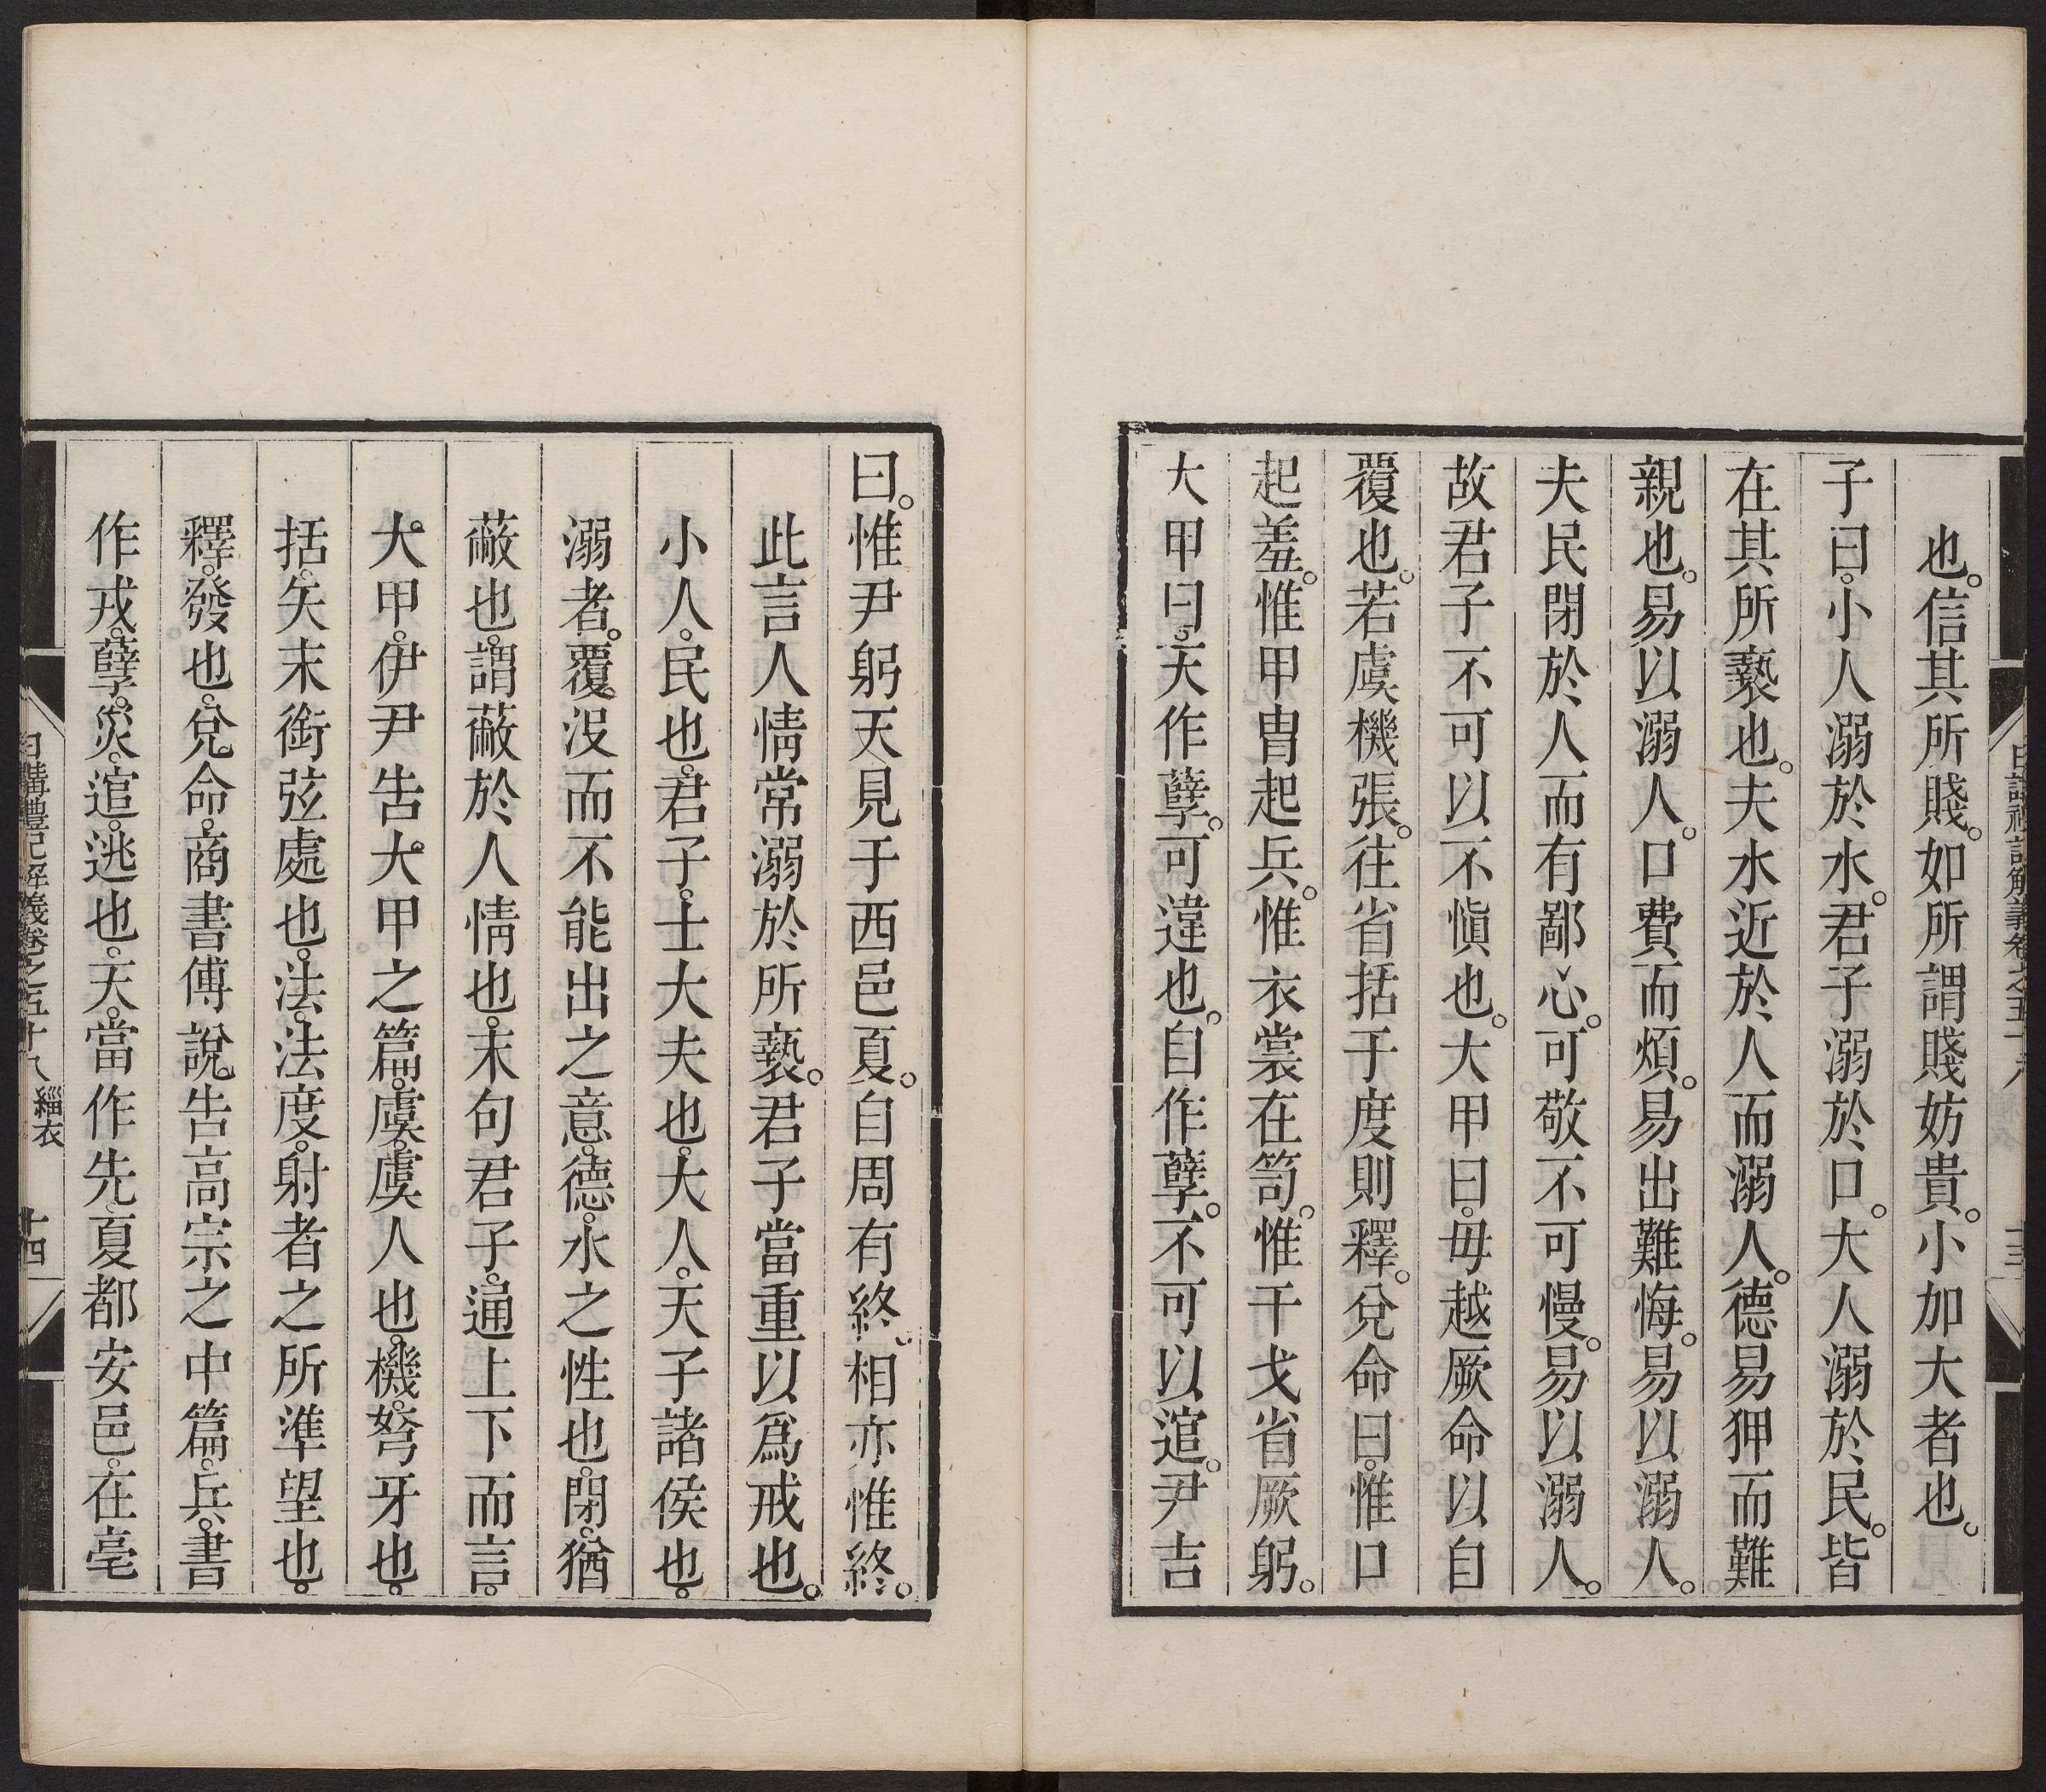 也。信其所賤。如所謂賤妨貴。小加大者也。
子曰。小人溺於水。君子溺於口。大人溺於民。皆
在其所褻也。夫水近於人而溺人。德易狎而難
親也。易以溺人。口費而煩。易出難悔。易以溺人。
夫民閉於人而有鄙心。可敬不可慢。易以溺人。
故君子不可以不愼也。大甲曰。毋越厥命以自
覆也。若虞機張。往省括于度則釋。兌命曰。惟口
起羞。惟甲冑起兵。惟衣裳在笥。惟干戈省厥躬。
大甲曰。天作孽。可違也。自作孽。不可以逭。尹吉
曰。惟尹躬天見于西邑夏。自周有終。相亦惟終。
此言人情常溺於所褻。君子當重以爲戒也。
小人。民也。君子。士大夫也。大人。天子諸侯也。
溺者。覆沒而不能出之意。德。水之性也。閉。猶
蔽也。謂蔽於人情也。末句君子。通上下而言。
大甲。伊尹告大甲之篇。虞。虞人也。機。弩牙也。
括。矢末銜弦處也。法。法度。射者之所準望也。
釋。發也。兌命。商書傅說告高宗之中篇。兵。書
作戎。孽。災。逭。逃也。天。當作先。夏都安邑。在亳
日講禮記解義卷之五十八 緇衣 十四